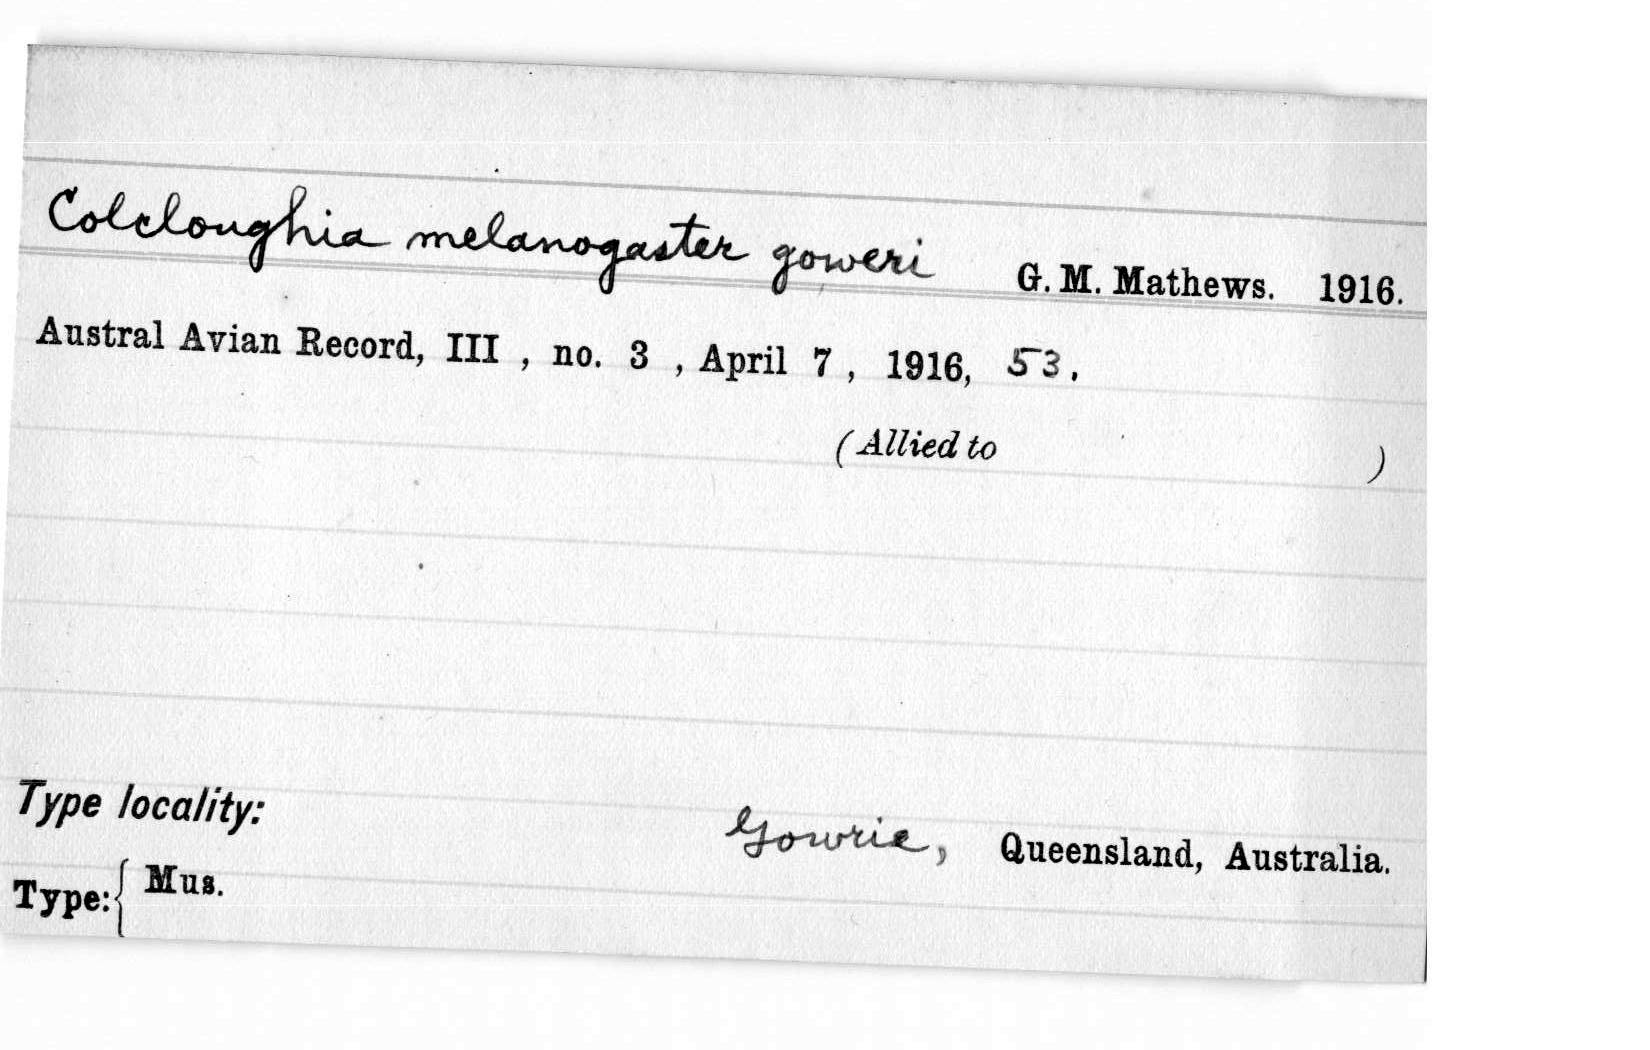 Colcloughia melanogaster goweri G. M. Mathews. 1916.
Austral Avian Record, III , no. 3 , April 7 , 1916, 53.
(Allied to )
Type locality:
Gowrie, Queensland, Australia.
Type:{ Mus.